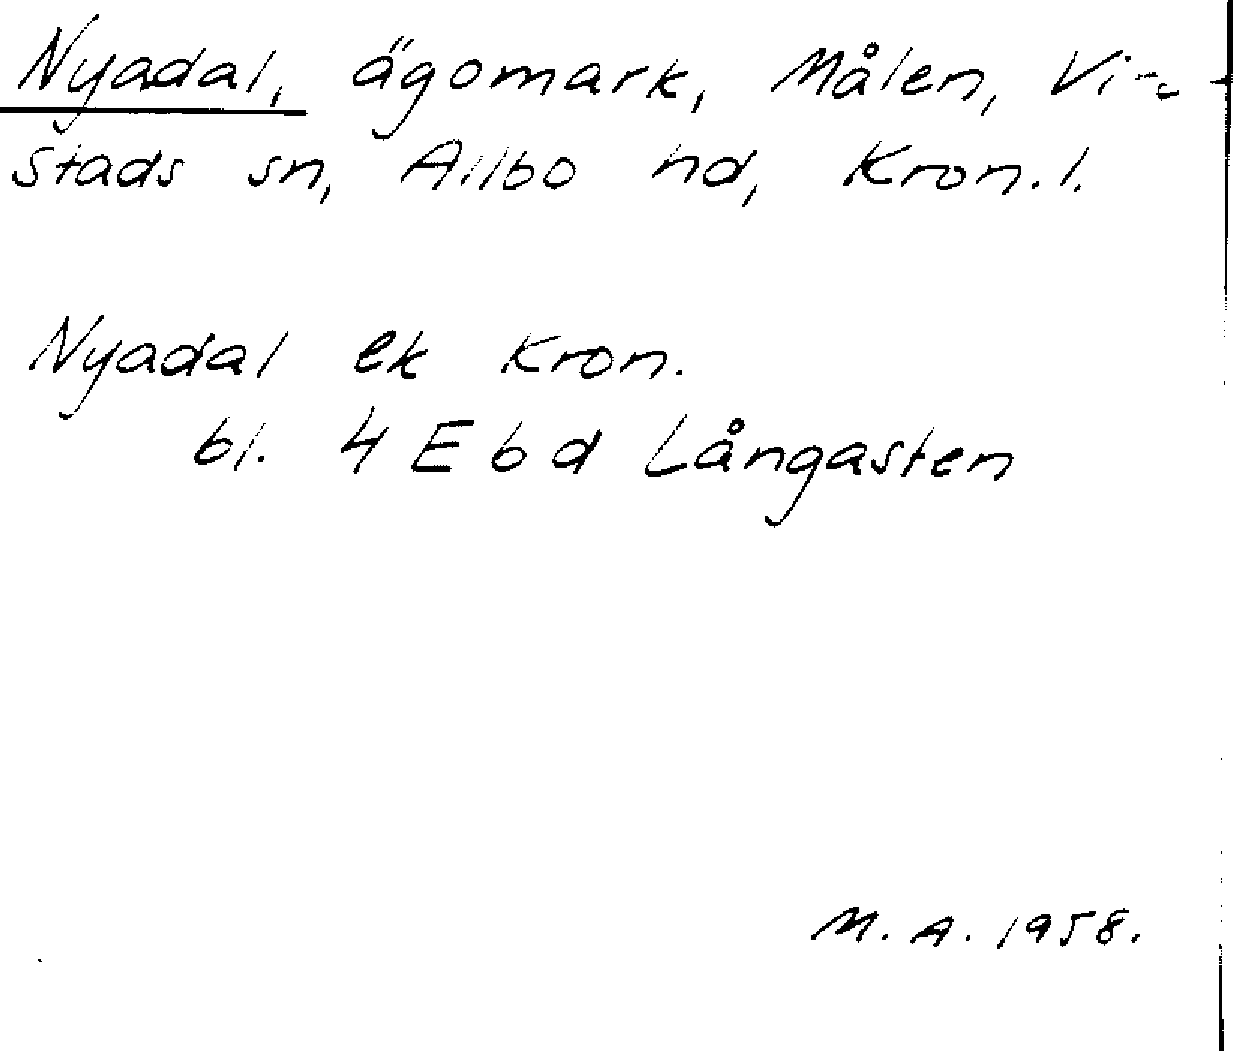 Nyadal, ägomark, Målen, Vi-
stads sn, Allbo hd, Kron. l.
Nyadal ek Kron.
bl. 4 E b d Långasten
M. A. 1958.